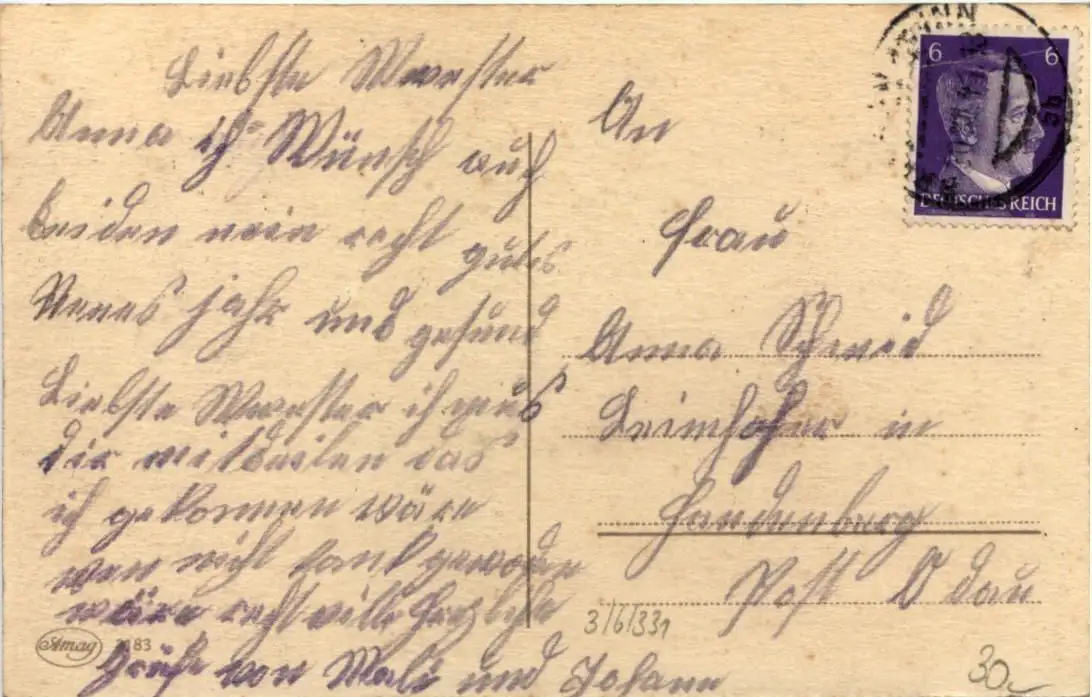 Liebste Swester
Anna ich Wünsch auch
beiden ein recht gutes
Neues jahr und gesund
Liebste Swester ich mus
dir mitdeilen das
ich gekommen wäre
wen nicht krank geworden
wäre recht ville herzliche
Grüße von Mali und Johann
An
Frau
Anna Schmid
in
Post
6 6
DEUTSCHES REICH
Amag
3/6/331
30.-